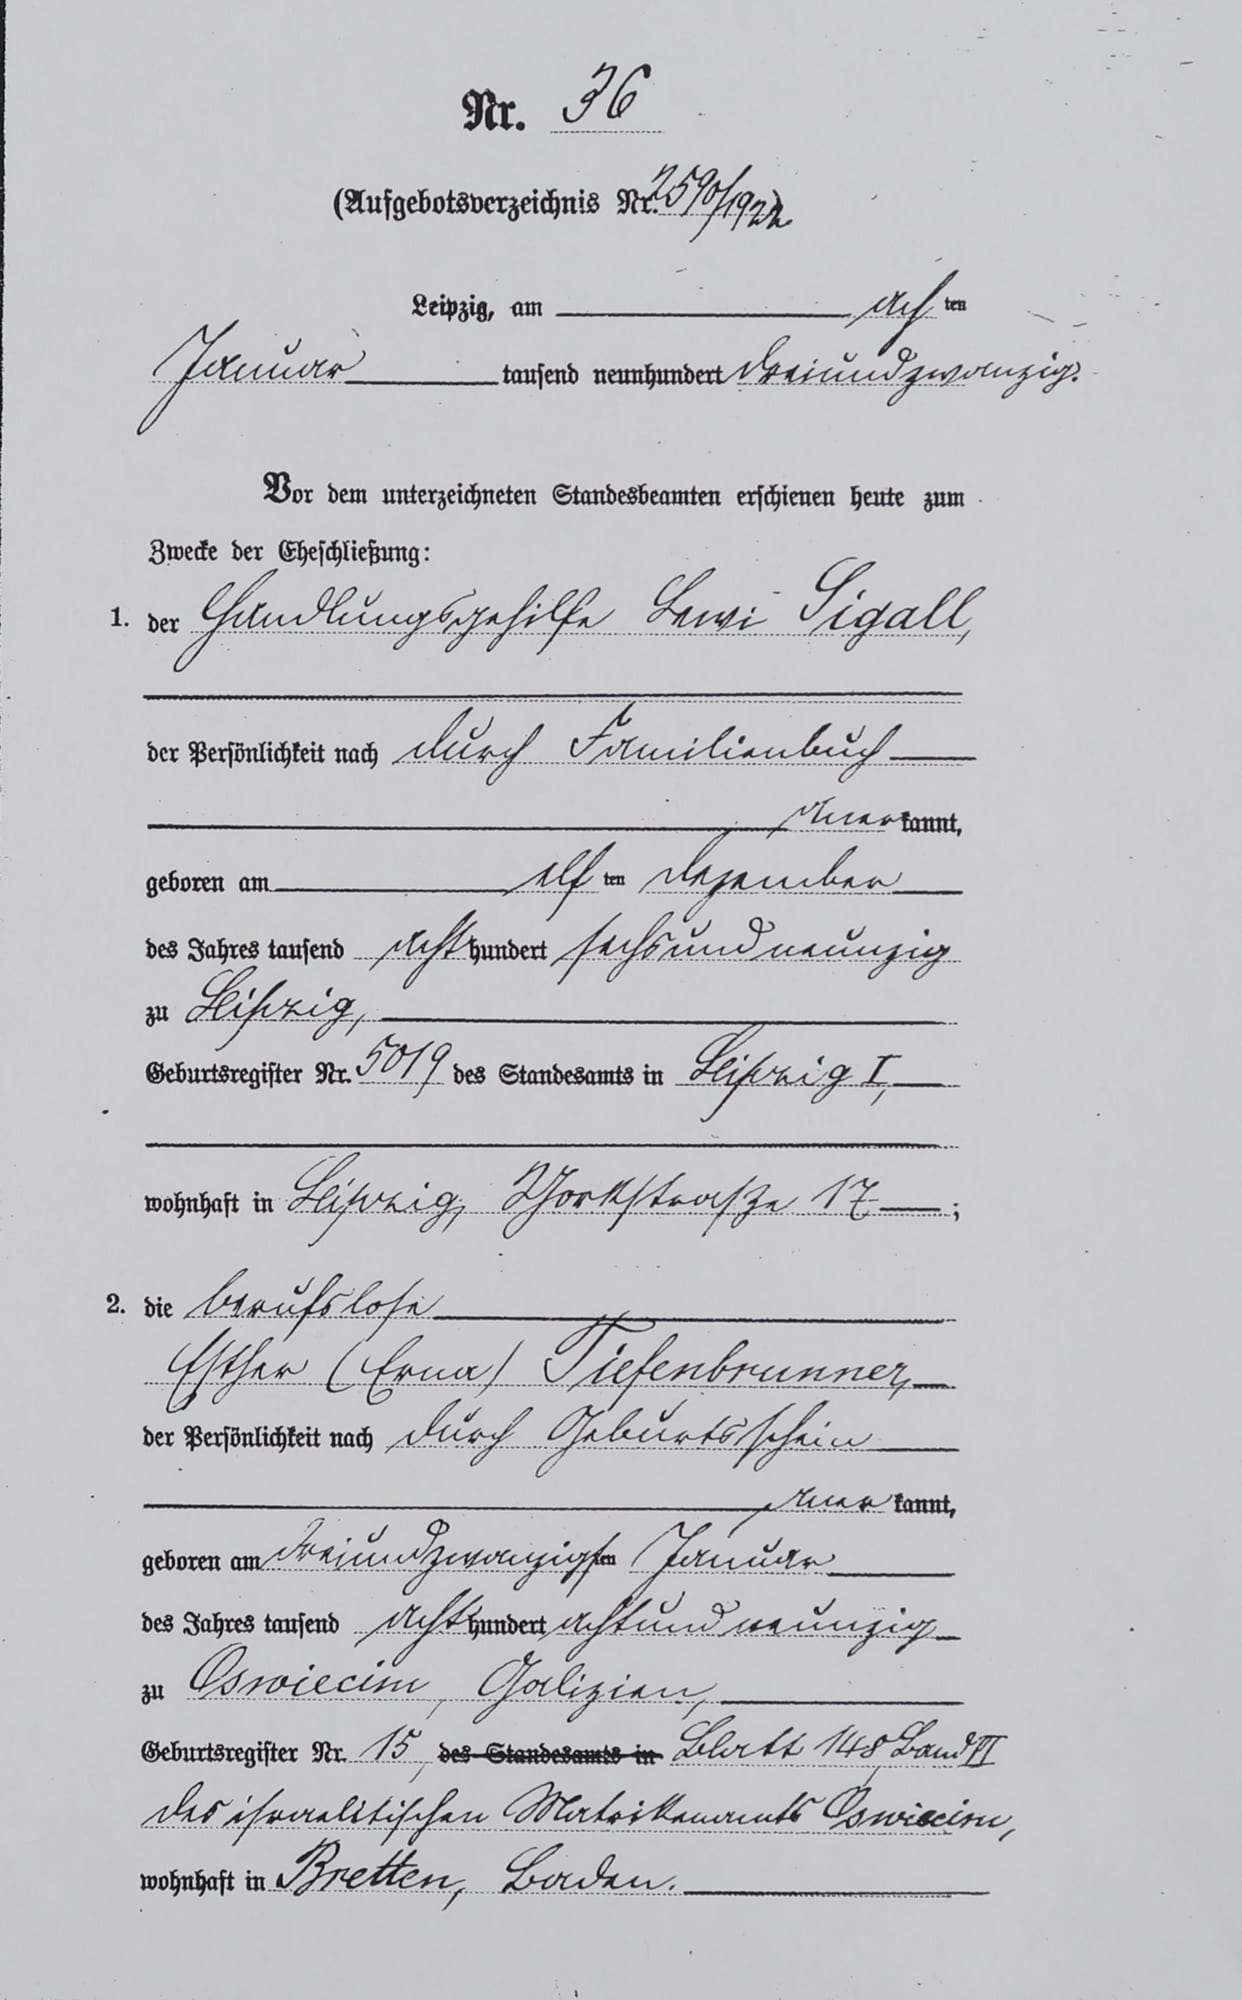 Nr. 36
(Aufgebotsverzeichnis Nr. 2590/1922)
Leipzig, am ach ten
Januar tausend neunhundert dreiundzwanzig.
Vor dem unterzeichneten Standesbeamten erschienen heute zum
Zwecke der Eheschließung:
1. der Handlungsgehilfe Lewi Sigall,
der Persönlichkeit nach durch Familienbuch
anerkannt,
geboren am elf ten Dezember
des Jahres tausend achthundert sechsundneunzig
zu Leipzig,
Geburtsregister Nr. 5019 des Standesamts in Leipzig I,
wohnhaft in Leipzig, Yorkstraße 17 ;
2. die berufslose
Esther (Erna) Tiefenbrunner,
der Persönlichkeit nach durch Geburtsschein
anerkannt,
geboren am dreiundzwanzigsten Januar
des Jahres tausend achthundert achtundneunzig
zu Oswiecim, Galizien,
Geburtsregister Nr. 15, des Standesamts in Blatt 148 Band VI
des israelitischen Matrikenamts Oswiecim,
wohnhaft in Bretten, Baden.